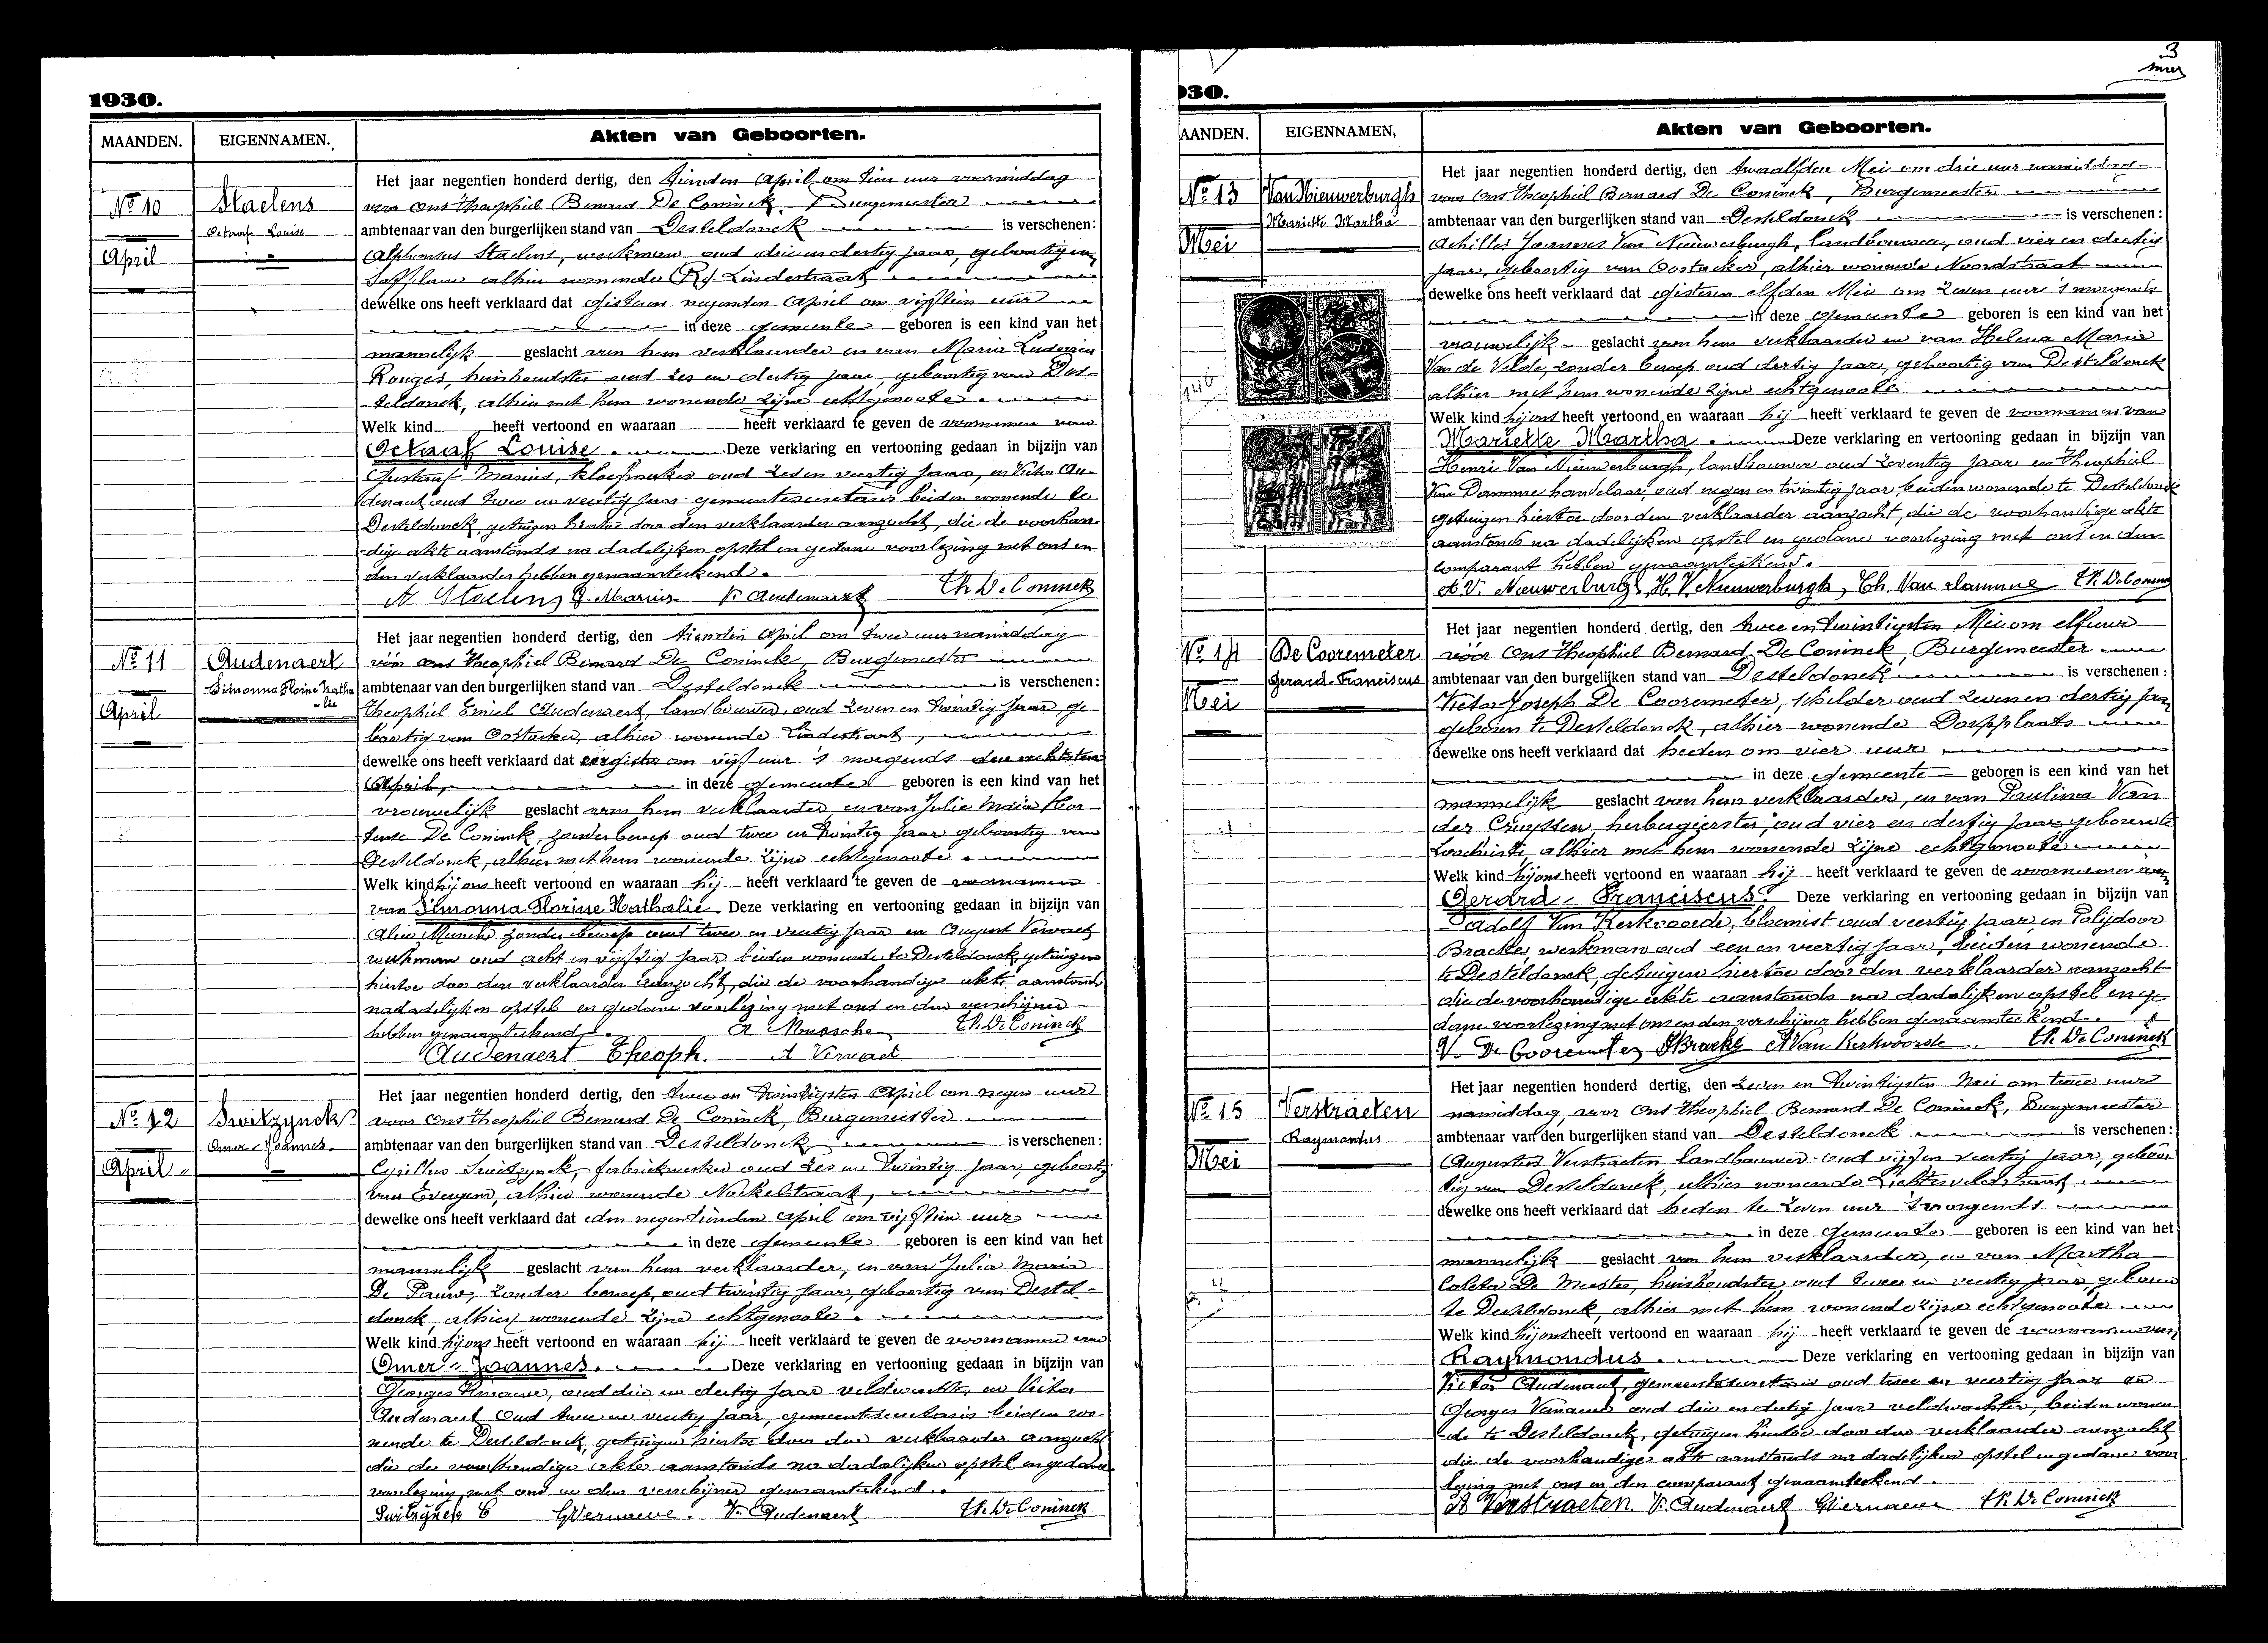 1930.
MAANDEN. EIGENNAMEN. Akten van Geboorten.
No 10
April
Staelens
Octaaf Louise
Het jaar negentien honderd dertig, den tienden April om tien uur voormiddag
voor Ons Theophiel Bernard De Coninck, Burgemeester
ambtenaar van den burgerlijken stand van Desteldonck is verschenen:
Alphonsus Staelens, werkman oud drie en dertig jaar, geboortig van
alhier wonende Lindestraat
dewelke ons heeft verklaard dat gisteren negenden April om vijftien uur
in deze gemeente geboren is een kind van het
mannelijk geslacht van hem verklaarder en van Maria Ludovica
Rouges, huishoudster oud zes en dertig jaar, geboortig van Des-
teldonck, alhier met hem wonende zijne echtgenoote.
Welk kind heeft vertoond en waaraan heeft verklaard te geven de voornamen van
Octaaf Louise. Deze verklaring en vertooning gedaan in bijzijn van
Gustaaf Marius, oud zes en veertig jaar, en Victor Au-
denaert oud twee en veertig jaar gemeentesecretaris beiden wonende te
Desteldonck, getuigen hiertoe door den verklaarder aanzocht, die de voorhan-
dige akte aanstonds na dadelijken opstel en gedane voorlezing met ons en
den verklaarder hebben genaamteekend.
A Staelens G. Marius V. Audenaert Th. De Coninck
No 11
April
Audenaert
Simonna Florine Natha
-lie
Het jaar negentien honderd dertig, den tienden April om twee uur namiddag
vóór ons Theophiel Bernard De Coninck, Burgemeester
ambtenaar van den burgerlijken stand van Desteldonck is verschenen:
Theophiel Emiel Audenaert, landbouwer, oud zeven en twintig jaar, ge-
boortig van Oostacker, alhier wonende Lindestraat,
dewelke ons heeft verklaard dat om vijf uur 's morgends den achtsten
April, in deze gemeente geboren is een kind van het
vrouwelijk geslacht van hem verklaarder en van Julie Maria Hor-
tense De Coninck, zonder beroep oud twee en twintig jaar geboortig van
Desteldonck, alhier met hem wonende zijne echtgenoote.
Welk kind hij ons heeft vertoond en waaraan hij heeft verklaard te geven de voornamen
van Simonna Florine Nathalie. Deze verklaring en vertooning gedaan in bijzijn van
zonder beroep oud twee en veertig jaar en August Vervaet
werkman oud acht en vijftig jaar beiden wonende te Desteldonck, getuigen
hiertoe door den verklaarder aanzocht, die de voorhandige akte aanstonds
na dadelijken opstel en gedane voorlezing met ons en den verschijner
hebben genaamteekend. Th. De Coninck
Audenaert Theoph. A Vervaet
No 12
April
Switzynck
Omer-Joannes.
Het jaar negentien honderd dertig, den twee en twintigsten April om negen uur
voor Ons Theophiel Bernard De Coninck, Burgemeester
ambtenaar van den burgerlijken stand van Desteldonck is verschenen:
Cyrillus Switzynck, fabriekwerker oud zes en twintig jaar, geboortig
van Evergem, alhier wonende
dewelke ons heeft verklaard dat den negentienden April om vijftien uur
in deze gemeente geboren is een kind van het
mannelijk geslacht van hem verklaarder, en van Julia Maria
De Pauw, zonder beroep, oud twintig jaar, geboortig van Destel-
donck, alhier wonende zijne echtgenoote.
Welk kind hij ons heeft vertoond en waaraan hij heeft verklaard te geven de voornamen van
Omer-Joannes. Deze verklaring en vertooning gedaan in bijzijn van
Georges oud drie en dertig jaar veldwachter en Victor
Audenaert oud twee en veertig jaar, gemeentesecretaris beiden wo-
nende te Desteldonck, getuigen hiertoe door den verklaarder aanzocht
die de voorhandige akte aanstonds na dadelijken opstel en gedane
voorlezing met ons en den verschijner genaamteekend.
Switzynck C V. Audenaert Th. De Coninck
3
930.
AANDEN. EIGENNAMEN, Akten van Geboorten.
No 13
Mei
Van Nieuwerburgh
Mariette Martha
2.50
Het jaar negentien honderd dertig, den twaalfden Mei om drie uur namiddag
voor Ons Theophiel Bernard De Coninck, Burgemeester
ambtenaar van den burgerlijken stand van Desteldonck is verschenen:
Achilles Joannes Van Nieuwerburgh, landbouwer, oud vier en dertig
jaar, geboortig van Oostacker, alhier wonende Noordstraat
dewelke ons heeft verklaard dat gisteren elfden Mei om zeven uur 's morgends
in deze gemeente geboren is een kind van het
vrouwelijk geslacht van hem verklaarder en van Helena Maria
Van de Velde, zonder beroep oud dertig jaar, geboortig van Desteldonck
alhier met hem wonende zijne echtgenoote
Welk kind hij ons heeft vertoond en waaraan hij heeft verklaard te geven de voornamen van
Mariette Martha. Deze verklaring en vertooning gedaan in bijzijn van
Henri Van Nieuwerburgh, landbouwer oud zeventig jaar en Theophiel
Van Damme handelaar, oud negen en twintig jaar, beiden wonende te Desteldonck
getuigen hiertoe door den verklaarder aanzocht, die de voorhandige akte
aanstonds na dadelijken opstel en gedane voorlezing met ons en den
comparant hebben genaamteekend.
A. V. Nieuwerburgh, H. V. Nieuwerburgh, Th. Van damme Th. De Coninck
No 14
Mei
De Cooremeter
Gerard-Franciscus
Het jaar negentien honderd dertig, den twee en twintigsten Mei om elf uur
vóór Ons Theophiel Bernard De Coninck, Burgemeester
ambtenaar van den burgerlijken stand van Desteldonck is verschenen:
Victor Joseph De Cooremeter, schilder oud zeven en dertig jaar
geboren te Desteldonck, alhier wonende Dorpplaats
dewelke ons heeft verklaard dat heden om vier uur
in deze gemeente geboren is een kind van het
mannelijk geslacht van hem verklaarder, en van Paulina Van
der Cruyssen, herbergierster, oud vier en dertig jaar geboren te
Loochristi, alhier met hem wonende zijne echtgenoote
Welk kind hij ons heeft vertoond en waaraan hij heeft verklaard te geven de voornamen van
Gerard-Franciscus. Deze verklaring en vertooning gedaan in bijzijn van
Adolf Van Kerkvoorde, bloemist oud veertig jaar, en Polydoor
Bracke, werkman oud een en veertig jaar, beiden wonende
te Desteldonck, getuigen hiertoe door den verklaarder aanzocht
die de voorhandige akte aanstonds na dadelijken opstel en ge-
dane voorlezing met ons en den verschijner hebben genaamteekend.
V. De Cooremeter PBracke A Van Kerkvoorde. Th. De Coninck
No 15
Mei
Verstraeten
Raymondus
Het jaar negentien honderd dertig, den zeven en twintigsten Mei om twee uur
namiddag, voor Ons Theophiel Bernard De Coninck, Burgemeester
ambtenaar van den burgerlijken stand van Desteldonck is verschenen:
Augustus Verstraeten landbouwer oud vijf en veertig jaar, geboor-
tig van Desteldonck, alhier wonende
dewelke ons heeft verklaard dat heden te zeven uur 's morgends
in deze Gemeente geboren is een kind van het
mannelijk geslacht van hem verklaarder, en van Martha
Coleta De Meester, huishoudster, oud twee en veertig jaar, geboren
te Desteldonck, alhier met hem wonende zijne echtgenoote
Welk kind hij ons heeft vertoond en waaraan hij heeft verklaard te geven de voornamen van
Raymondus. Deze verklaring en vertooning gedaan in bijzijn van
Victor Audenaert, gemeentesecretaris oud twee en veertig jaar en
Georges oud drie en dertig jaar veldwachter, beiden wonen-
de te Desteldonck, getuigen hiertoe door den verklaarder aanzocht
die de voorhandige akte aanstonds na dadelijken opstel en gedane voor-
lezing met ons en den comparant genaamteekend.
A Verstraeten V. Audenaert Th. De Coninck